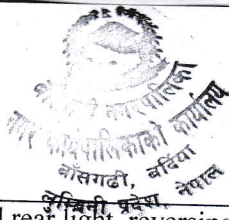 नगरपालिका
नगर कार्यपालिकाको कार्यालय
बाँसगढी, बर्दिया
लुम्बिनी प्रदेश, नेपाल
rear light, reversing